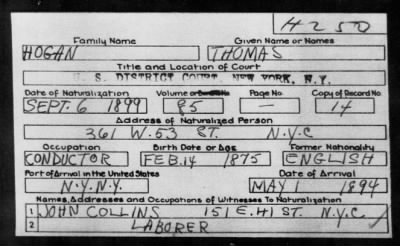 H250
Family Name Given Name or Names
HOGAN THOMAS
Title and Location of Court
U. S. DISTRICT COURT, NEW YORK, N.Y.
Date of Naturalization Volume or Bundle No Page No Copy of Record No
SEPT. 6 1899 85 — 14
Address of Naturalized Person
361 W. 53 ST. N.Y.C
Occupation Birth Date or Age Former Nationality
CONDUCTOR FEB. 14 1875 ENGLISH
Port of Arrival in the United States Date of Arrival
N.Y. N.Y. MAY 1 1894
Names, Addresses and Occupations of Witnesses To Naturalization
1 JOHN COLLINS 151 E. 41 ST. N.Y.C.
2 LABORER